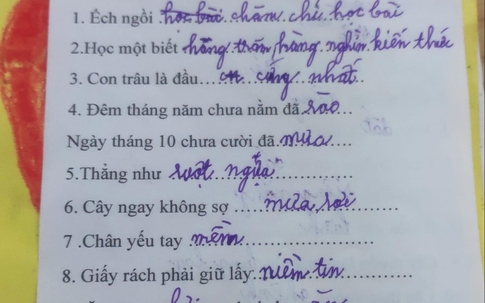 1. Ếch ngồi học bài chăm chỉ học bài
2.Học một biết hằng trăm hàng nghìn kiến thức
3. Con trâu là đầu... cứng nhất..
4. Đêm tháng năm chưa nằm đã rào...
Ngày tháng 10 chưa cười đã.mưa....
5.Thẳng như ruột ngựa.............
6. Cây ngay không sợ ....mưa rơi
7 .Chân yếu tay mềm...................
8. Giấy rách phải giữ lấy.niềm tin........